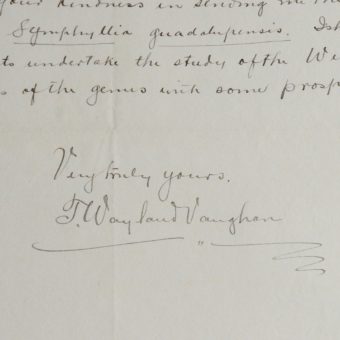 your kindness in sending me the
Symphyllia guadalupensis. I sh
to undertake the study of the We
s of the genus with some prosp
Very truly yours,
T. Wayland Vaughan